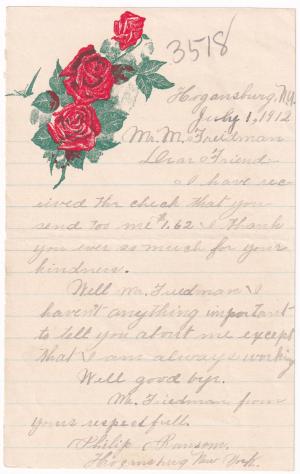 3518
Hogansburg, N.Y.
July 1, 1912
Mr. M. Friedman
Dear Friend
I have rec
eived the check that you
send too me $1.62 I thank
you ever so much for your
kindness.
Well Mr. Friedman I
haven't anything important
to tell you about me except
that I am always working
Well good bye.
Mr. Friedman from
yours respectfull.
Philip Ransom.
Hogansburg New York.